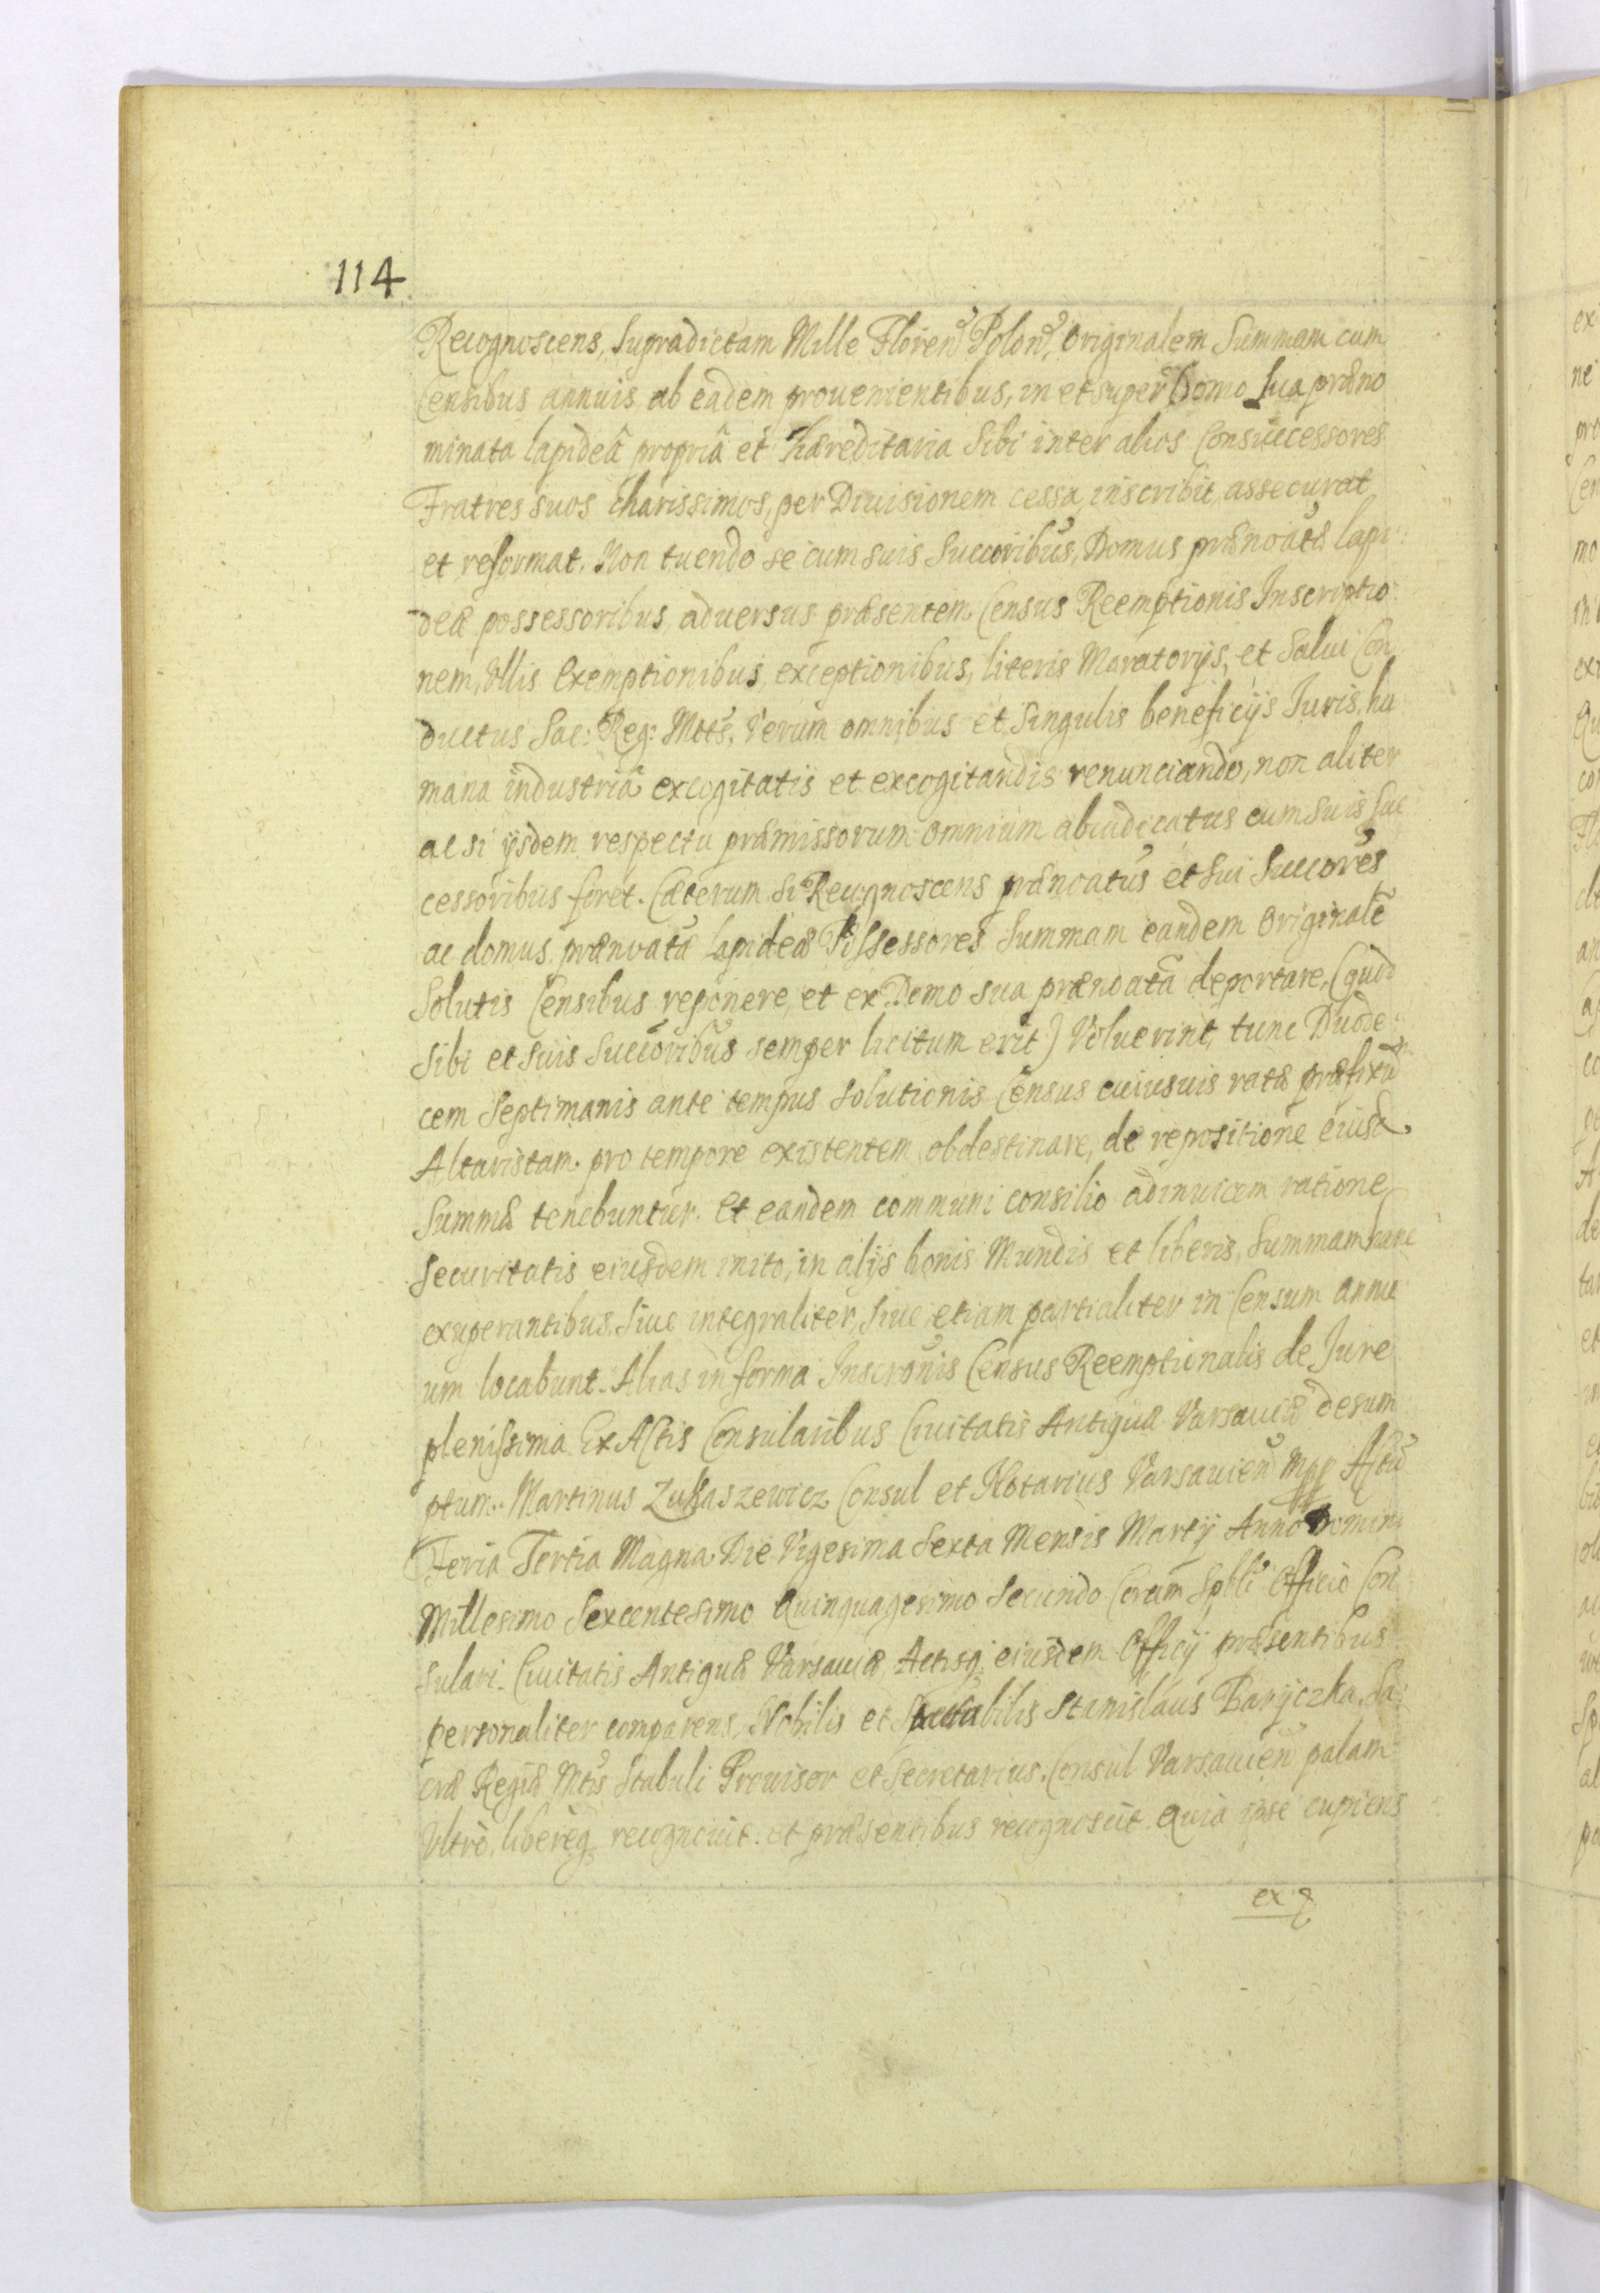 114
Recognoscens, Supradictam Mille Floren Polon, Originalem Summam cum
Censibus annuis ab eadem prouenientibus, in et super Domo sua præno
minata lapideâ propriâ et hæreditaria Sibi inter alios Consuccessores
Fratres suos Charissimos, per Diuisionem cessa, inscribit, assecurat
et reformat. Non tuendo se cum suis Succoribus, Domus prænoatæ lapi:
deæ possessoribus, aduersus præsentem Census Reemptionis Inscriptio
nem, Ullis Exemptionibus, exceptionibus, literis Moratorijs, et Salui Con
ductus Sac: Reg: Mttis, Verum omnibus et Singulis beneficijs Iuris, hu
mana industriâ excogitatis et excogitandis renunciando, non aliter
ac si ijsdem respectu præmissorum omnium abiudicatus cum suis Suc
cessoribus foret. Cæterum Si Recognoscens prænoatus et Sui Succores
ac domus prænoatæ Lapideæ Possessores Summam eandem Originalē
Solutis Censibus reponere, et ex Domo sua prænoatâ deportare, (quod
Sibi et suis Succoribus semper licitum erit) Voluerint, tunc Duode
cem Septimanis ante tempus Solutionis Census cuiusuis ratæ præfixū
Altaristam pro tempore existentem obdestinare, de repositione eiusd.
Summæ tenebuntur. Et eandem communi consilio adinuicem ratione
Securitatis eiusdem inito, in alijs bonis Mundis et liberis, Summam hanc
exuperantibus, Siue integraliter, Siue etiam partialiter in Censum annu
um locabunt. Alias in forma Inscronis Census Reemptionalis de Iure
plenissima. Ex Actis Consularibus Ciuitatis Antiquæ Varsauiæ desum
ptum. Martinus Zukaszewicz Consul et Notarius Varsauien mpp Actū
Feria Tertia Magna Die Vigesima Sexta Mensis Martij Anno Domini
Millesimo Sexcentesimo Quinquagesimo Secundo Coram Spbli Officio Con
sulari Ciuitatis Antiquæ Varsauiæ Actisq; eiusdem Officij præsentibus
personaliter comparens, Nobilis et Spectabilis Stanislaus Baryczka, Sa:
cræ Regiæ Mtis Stabuli Prouisor et Secretarius, Consul Varsauien palam
Ultrò, libereq; recognouit. et præsentibus recognoscit. Quia ipse cupiens